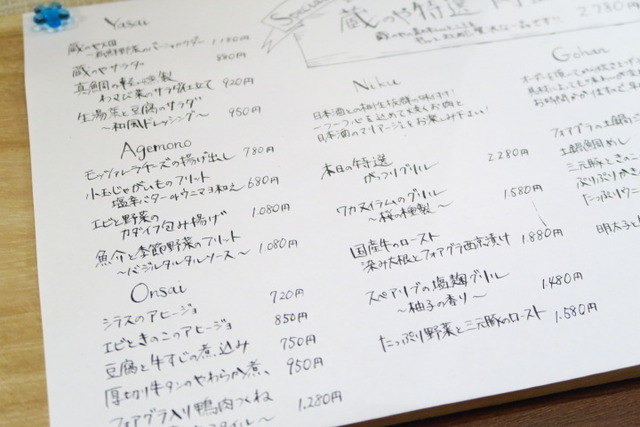 Yasai
蔵のや大畑
～新鮮野菜のバーニャカウダ～ 1,180円
蔵のやサラダ 880円
真鯛の軽い燻製
わさび菜のサラダ仕立て 920円
生湯葉と豆腐のサラダ
～和風ドレッシング～ 950円
Agemono
モッツァレラチーズの揚げ出し 780円
小玉じゃがいものフリット
塩辛バターorウニマヨ和え 680円
エビと野菜の
カダイフ包み揚げ 1.080円
魚介と季節野菜のフリット
～バジルタルタルソース～ 1.080円
Onsai
シラスのアヒージョ 720円
エビときのこのアヒージョ 850円
豆腐と牛すじの煮込み 750円
厚切り牛タンのやわらか煮 950円
フォアグラ入り鴨肉つくね
スタイル～ 1.280円
Special
蔵のや特選
2.780円
Niku
日本酒との相性抜群の味付け!
一つ一つ心を込めて焼くお肉と
日本酒のマリアージュをお楽しみ下さい!
本日の特選
がっつりグリル 2.280円
ワカヌイラムのグリル
～桜の燻製～ 1.580円
国産牛のロースト
染み大根とフォアグラ西京漬け 1.880円
スペアリブの塩麹グリル
～柚子の香り～ 1.480円
たっぷり野菜と三元豚のロースト 1.580円
Gohan
フォアグラの土鍋
土鍋鯛めし
三元豚ときのこ
ぷりぷりかき
たっぷりウニ
明太子と